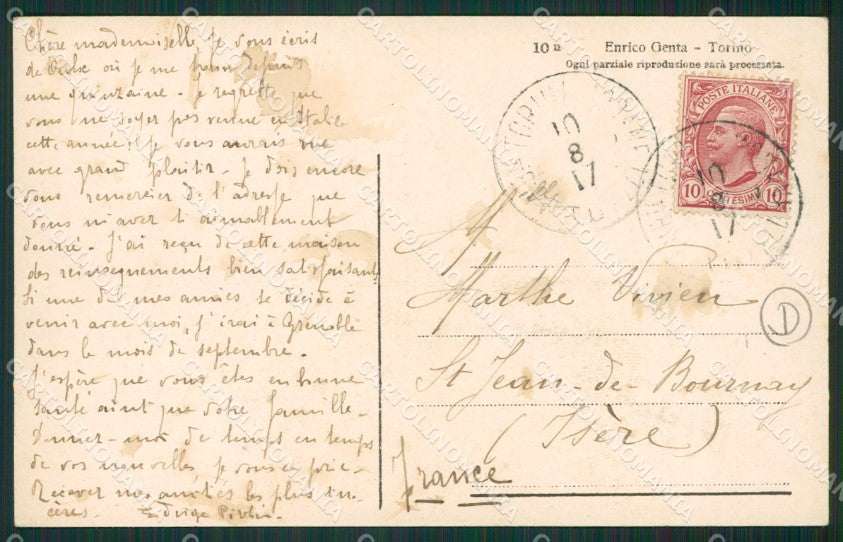 Chère mademoiselle Je vous écris
où je me trouve depuis
une quinzaine. Je regrette que
vous ne soyer pas venue en Italie
cette année je vous aurais vue
avec grand plaisir. Je dois encore
vous remercier de l'adresse que
vous m'avez si aimablement
donnée. J'ai reçu de cette maison
des renseignements bien satisfaisants
Si une de mes amies se décide à
venir avec moi, j'irai à Grenoble
dans le mois de septembre.
J'espère que vous êtes en bonne
santé ainsi que votre famille.
Donner-moi de temps en temps
de vos nouvelles je vous en prie.
Recever mes amitiés les plus sin-
cères. Edvige
10 n Enrico Genta - Torino
Ogni parziale riproduzione sarà processata.
POSTE ITALIANE
10 CENTESIMI 10
10
8
17
10
8
17
Mlle
Marthe Vivien
St Jean-de-Bournay
(Isère)
France
D
CARTOLINOMANIA